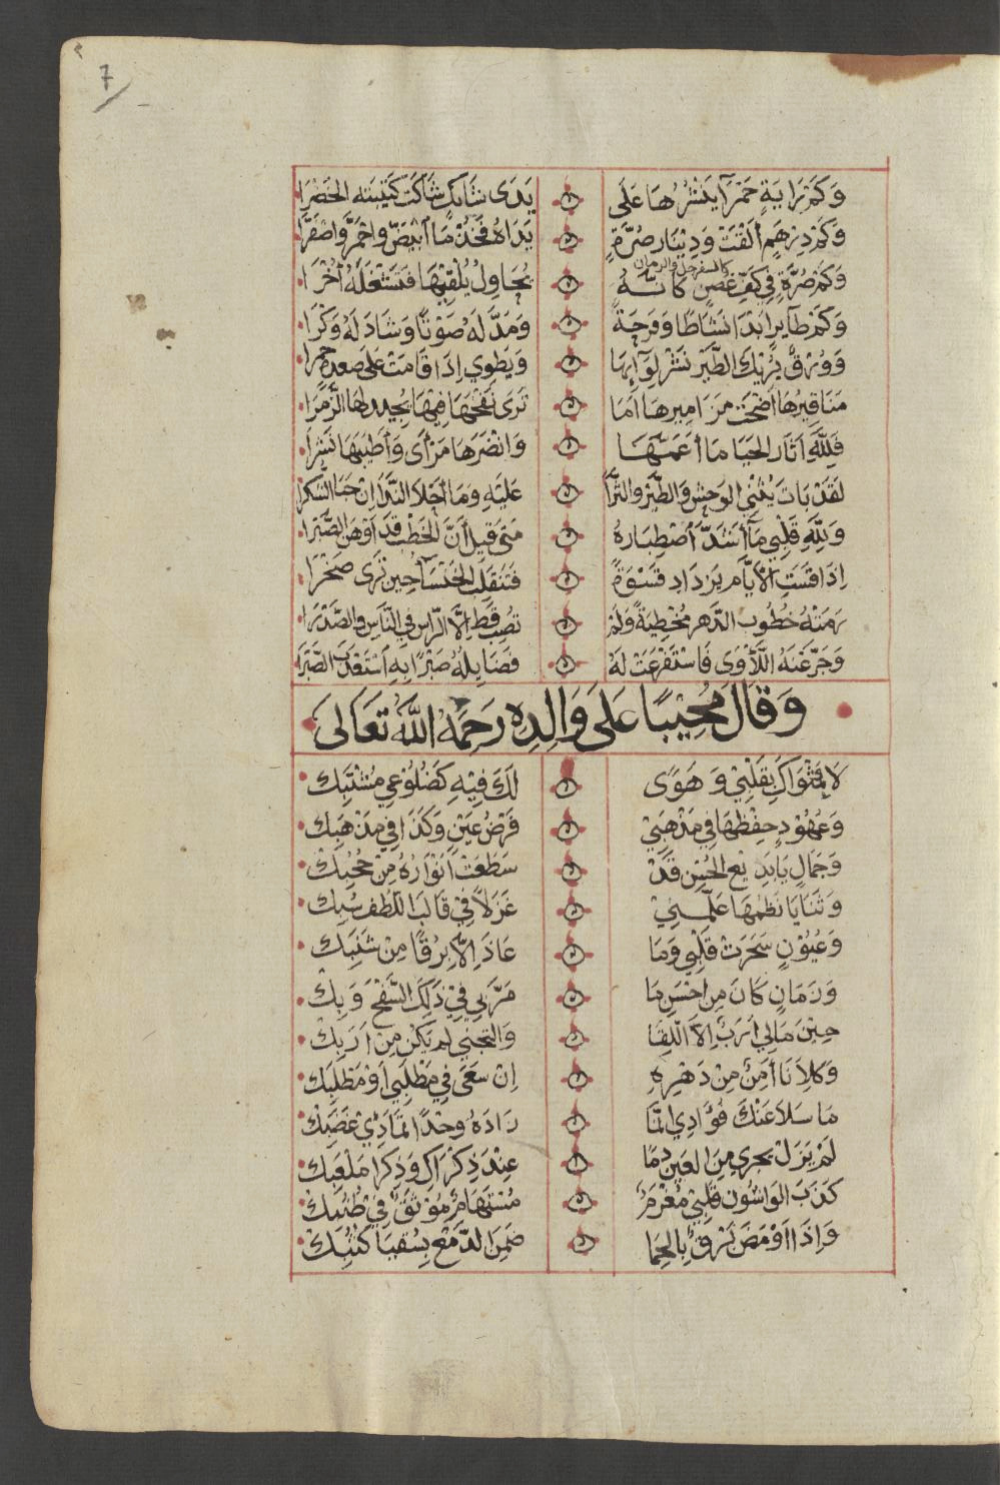 7
وَكَمْ رَايَةٍ حَمْرَآ يَنْشُرُهَا عَلَى يَدَى شَابِكٍ شَاكَتْ كَتِيْبَتُه الخَضْرَا
وَكَمْ دِرْهَمٍ أَلْقَتْ وَدِيْنَارِ صُرَّةٍ يَدَاهُ فَخُذْ مَا أَبْيَضَّ وَاحْمَرَّ وَاصْفَرَّا
كالسفرجل والرمان
وَكَمْ صُرَّةٍ فِي كَفِّ غُصْنٍ كَأَنَّهُ يُحَاوِلُ يُلْقِيْهَا فَتَشْغَلُهُ أُخْرَا
وَكَمْ طَآيِرٍ أَبْدَا نَشَاطًا وَفَرْحَةً وَمَدَّ لَهُ صَوْتًا وَشَادَ لَهُ وَكْرَا
وَوُرْقٌ يُرِيْكَ الطَّيْرُ نَشْرَ لِوَآيِهَا وَيَطْوِي إِذَا قَامَتْ عَلَى صعدة حمرا
مَنَاقِيرُهَا أَضْحَتْ مَزَامِيرهَا أَمَا تَرَى نَفْخَهَا فِيْهَا يُجِيد لهَا الزَّمْرَا
فَلِلَّهِ آثَار الحَيَا مَا أَعَمَّهَا وَانْضَرَهَا مَرْأَى وَأَطْيَبَهَا نَشْرَا
لَقَدْ بَاتَ يُثْنِي الوَحْش وَالطَّيْرُ وَالثَّرَا عَلَيْهِ وَمَا أَحْلاَ النَّدَا إِنْ جَنَا الشُّكْرَا
وَلِلَّهِ قَلْبِي مَآ أَشَدَّ أَصْطِبَارَهُ مَتَى قِيلَ أَنَّ الخَطْبَ قَد أَوْهَنَ الصَّبْرَا
إِذَا قَسَتِ الأَيَّام يَزْدَاد قَسْوَةً فَتَنْقَلِبُ الخَنْسَآ حِين تَرَى صَخْرَا
رَمَتْهُ خُطُوب الدَّهر مُخْطِيَةً وَلَمْ تُصِبْ قَطُّ إِلَّا الرَّاس فِي النَّاسِ والصَّدْرَا
وَجَرَّعَنَهُ اللَّأْوَى فَاسْتَفْرَغَتْ لَهُ فَضَايِلُهُ صَبْرًا بِهِ اسْتَعْذَبَ الصَّبْرَا
وَقَالَ مُجِيْبًا عَلَى وَالِدِهِ رَحِمَهُ اللَّه تَعَالى
لاَ وَمَثْوَاكِ بِقَلْبِيْ وَهَوًى لَكَ فِيْهِ كَضُلُوْعِي مُشْتَبِك
وَعُهُوْدٍ حِفْظُهَا فِي مَذْهَبِيْ فَرْضُ عَيْنٍ وَكَذَا فِي مَذْهَبِك
وَجَمَالٍ يَا بَدِيْع الحُسْنِ قَدْ سَطَعَتْ أَنْوَارُهُ مِنْ حُجُبِك
وَثَنَايَا نَظْمُهَا عَلَّمَنِيْ غَزَلاً فِيْ قَالَبَ اللُّطْف سُبِك
وَعُيُوْنٍ سَحَرَتْ قَلْبِي وَمَا عَاذَ إِلاَّ بِرُقًا مِنْ شَنَبِك
وَزَمَانٍ كَانَ مِن أَحْسَنِ مَا مَرَّ بِي فِيْ ذَلِكَ السَّفْحِ وَبِك
حِيْنَ مَا لِي أَرَبٌ إِلاَّ اللِّقَا وَالتَّجَنِّي لم يَكُنْ مِنْ أَرَبِك
وَكِلاَنَا آمِنٌ مِنْ دَهْرِهِ إِنْ سَعَى فِي مَطْلَبِي أَوْ مَطْلَبِك
مَا سَلاَ عَنْكَ فُؤَادِي إنَّمَا زَادَهُ وَجْدًا تمَادِي غَضَبِك
لَمْ يَزَلْ يجري مِنَ العَيْنِ دَمًا عِنْدَ ذِكْرَاكِ وَذِكْرَا مَلْعَبِك
كَذَبَ الوَاشُونَ قَلْبِيْ مُغْرَمٌ مُسْتَهَامٌ مُوْثَقٌ فِي طُنُبِك
وَإِذَا أَوْمَضَ بَرْقٌ بِالحِمَا ضَمِنَ الدَّمْعُ بِسُقْيَا كُثُبِك